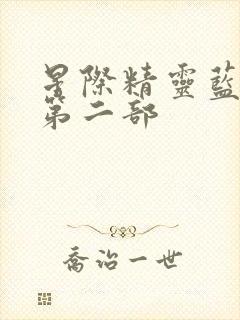 星際精靈藍
第二部
喬治一世